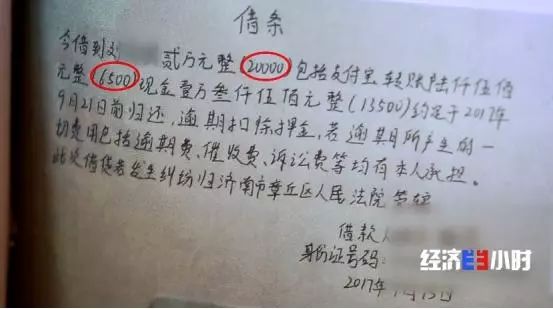 借条
今借到刘 贰万元整(20000)包括支付宝转账陆仟伍佰
元整(6500)现金壹万叁仟伍佰元整(13500)约定于2017年
9月21日前归还,逾期扣除押金,若逾期所产生的一
切费用包括逾期费、催收费、诉讼费等均有本人承担。
此次借贷若发生纠纷归济南市章丘区人民法院管辖
借款人
身份证号码:
2017年 月15日
经济半小时